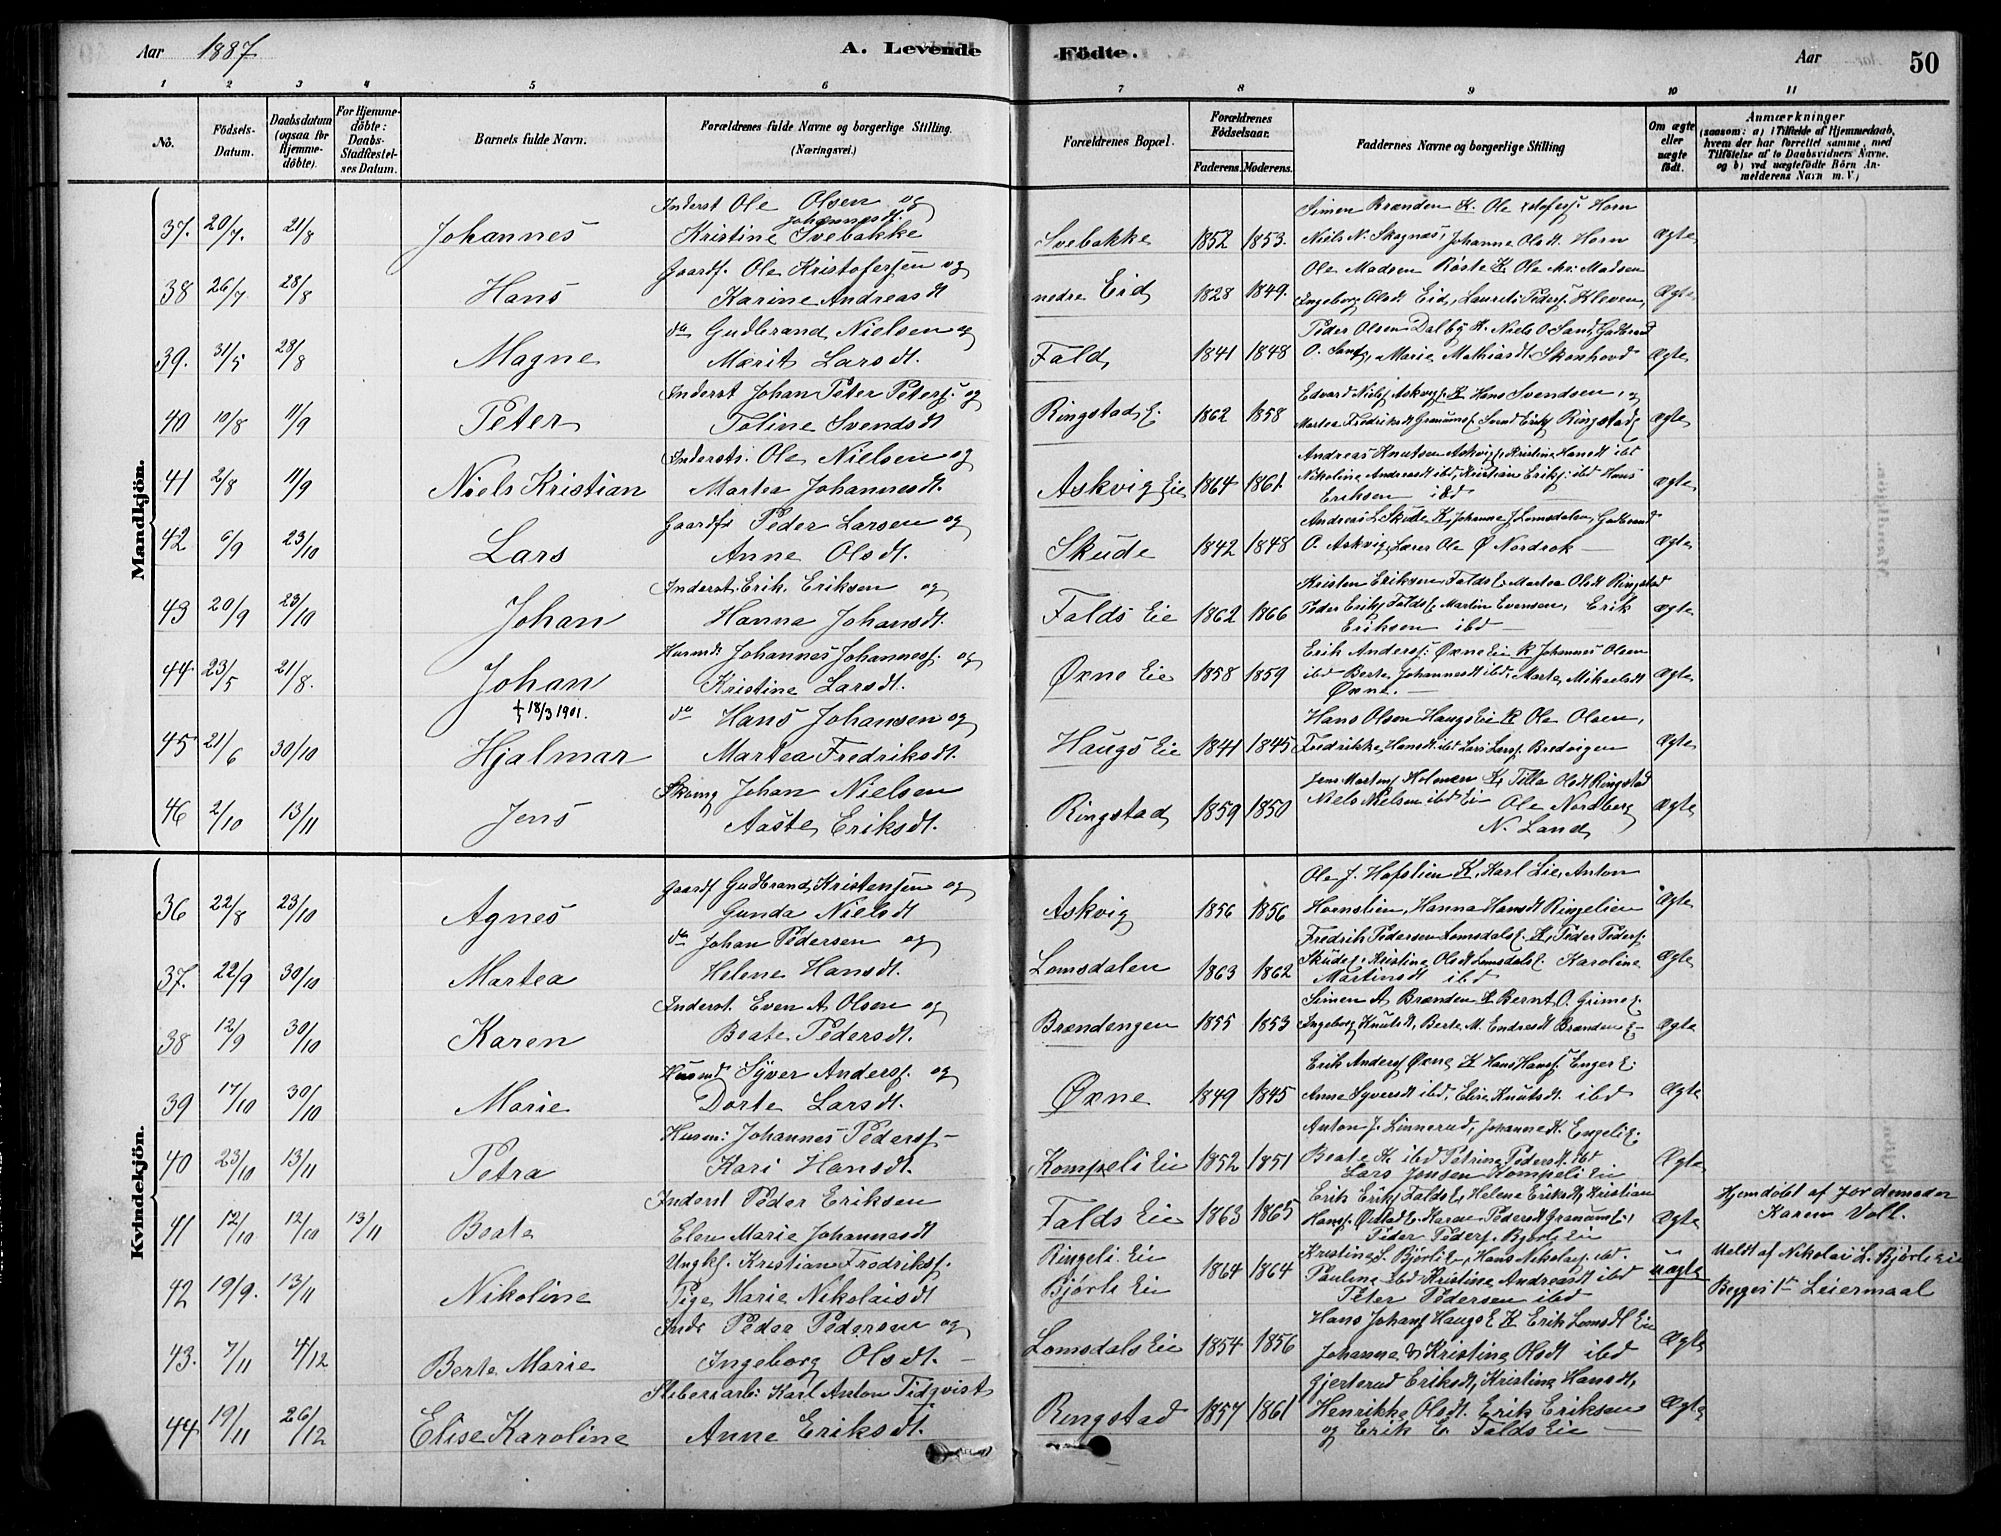 Aar 1887 A. Levende Födte. Aar 50
1 2 3 4 5 6 7 8 9 10 11
No. Födsels-Datum. Daabsdatum (ogsaa for Hjemmedöbte). For Hjemmedöbte: Daabs-Stadfæstelses Datum. Barnets fulde Navn. Forældrenes fulde Navne og borgerlige Stilling. (Næringsvei.) Forældrenes Bopæl. Forældrenes Födselsaar. Faderens. Moderens. Faddernes Navne og borgerlige Stilling Om ægte eller uægte födt. Anmærkninger (saasom: a) i Tilfælde af Hjemmedaab, hvem der har forrettet samme, med Tilföielse af to Daabsvidners Navne, og b) ved uægtefödte Börn Anmelderens Navn m. V.)
Mandkjön.
37. 20/7. 21/8 Johannes Inderst Ole Olsen og Kristine Johannesdt. Svebakke Svebakke 1852 1853. Simen Brænden K. Ole Horn Niels N. Skognæs, Johanne Olsdt. Horn Ægte
38 26/7 28/8 Hans Gaardf. Ole Kristofersen og Karine Andreasdt nedre Eid 1828 1849. Ole Madsen Røste K Ole Madsen Ingeborg Olsdt Eid, Laurits Peders. Kleven, Ægte
39. 31/5 28/8 Magne do Gudbrand Nielsen og Marit Larsdt. Fald 1841 1848 Peder Olsen Dalby K. Niels O Sand, Gudbrand O. Sand, Marie Mathiasdt Skonhovd Ægte
40 10/8 11/9 Peter Inderst Johan Peter Peters. og Toline Svendsdt Ringstad E. 1862 1858 Edvard Niels. Askvigs. K Hans Svendsen, og Martea Fredriksdt Granum Svend Eriks Ringstad Ægte
41 2/8 11/9 Niels Kristian Indersts. Ole Nielsen og Martea Johannesdt. Askvig Eie 1864 1861. Andreas Knutsen Askvig Kristine Hansdt ibd Nikoline Andreasdt ibd, Kristian Eriks. ibd Hans Eriksen ibd Ægte
42 6/9 23/10 Lars Gaardf. Peder Larsen og Anne Olsdt. Skude 1842 1848 Andreas L. Skude K, Johanne J Lomsdalen, Gudbrand O. Askvig, Lærer Ole Ø Nordrok Ægte
43 20/9 23/10 Johan Inderst. Erik Eriksen og Hanna Johansdt. Falds Eie 1862 1866 Kristen Eriksen Falds E. Martea Olsdt Ringstad Peder Eriks Falds Martin Evensen, Erik Eriksen ibd Ægte
44. 23/5 21/8. Johan Husmd Johannes Johannes. og Kristine Larsdt. Øxne Eie 1858 1859 Erik Anders. Øxne Eie K Johannes Olsen ibd Berte Johannesdt ibd, Marte Mikelsdt Øxne. Ægte
† 18/3 1901.
45 21/6 30/10 Hjalmar do Hans Johansen og Martea Fredriksdt. Haugs Eie 1841 1845 Hans Olsen Haugs Eie K Ole Olsen, Fredrikke Hansdt ibd Lars Lars. Bredvigen Ægte
46 2/10 13/11 Jens Johan Nielsen Aaste Eriksdt. Ringstad 1859 1850 Jens Martens Holmen K, Tilla Olsdt Ringstad Niels Nielsen ibd Ei Ole Nordberg N. Land Ægte
Kvindekjön.
36 22/8 23/10 Agnes Gaardf Gudbrand Kristensen og Gunda Nielsdt Askvig 1856 1856 Ole J. Hofslien K, Karl Lie, Anton Hornslien, Hanna Hansdt Ringelien Ægte
37. 22/9 30/10 Martea do Johan Pedersen og Helene Hansdt. Lomsdalen 1863 1862 Fredrik Pedersen Lomsdals E. K, Peder Peders. Skudes, Kristine Olsdt Lomsdals E. Karoline Martinsdt ibd Ægte
38 12/9 30/10 Karen Inderst. Even A. Olsen og Beate Pedersdt. Brændengen 1855 1853 Simen A Brænden K Bernt O. Grime E. Ingeborg Knutsdt, Berte M. Endresdt Brænden E Ægte
39 17/10 30/10 Marie Husmd Syver Anders. og Dorte Larsdt. Øxne 1849 1845 Erik Anders Øxne K Hans Hans. Enger E. Anne Syversdt ibd, Elise Knutsdt. ibd Ægte
40 23/10 13/11 Petra Husm: Johannes Peders Kari Hansdt. Kompeli Eie 1852 1851 Anton J. Linnerud, Johanne K. Engeli E. Beate K. ibd Petrine Pedersdt. ibd Lars Jensen Kompeli Eie Ægte
41 12/10 12/10 13/11 Beate Inderst Peder Eriksen Elen Marie Johannesdt Falds Eie 1863 1865 Erik Eriks Falds E, Helene Eriksdt, Kristian Hans. Karen Pedersdt Granum E, Peder Peders. Bjørli Eie Ægte Hjemdøbt af Jordemoder Karen Voll.
42 19/9. 13/11 Nikoline Ungk. Kristian Fredriks. Pige Marie Nikolaisdt Ringeli Eie Bjørli Eie 1864 1864 Kristine S. Bjørli E, Hans Nikolais. ibd. Pauline ibd Kristine Andreasdt ibd Peter Pedersen ibd uægte Meldt af Nikolai L. Bjørli Eie Begges 1te Leiermaal
43. 7/11 4/12 Berte Marie Inds Peder Pedersen og Ingeborg Olsdt. Lomsdals Eie 1854 1856 Hans Johans Haugs E K Erik Lomsdl Eie Johanne & Kristine Olsdt ibd Ægte
44 19/11 26/12 Elise Karoline Sliberiarb: Karl Anton Tidqvist Anne Eriksdt. Ringstad 1857 1861 Gjertrud Eriksdt, Kristine Hansdt, Henrikke Olsdt. Erik Eriksen og Erik E. Falds Eie Ægte